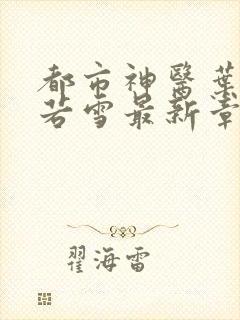 都市神醫葉
若雪最新章
翟海雷